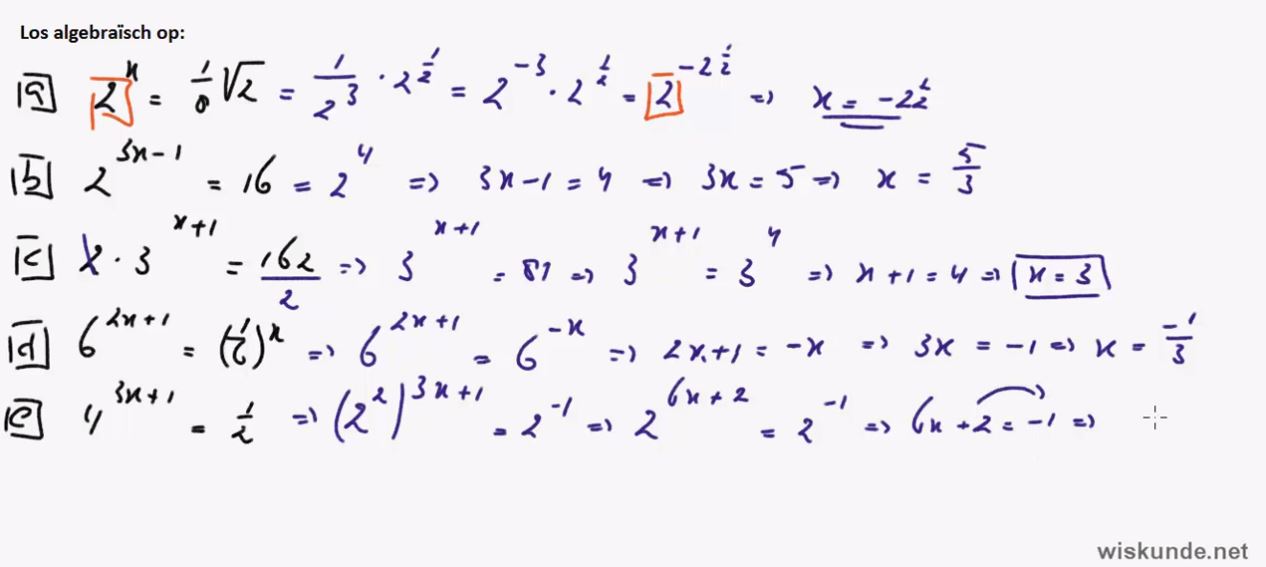 Los algebraïsch op:
a 2^x = 1/8 √2 = 1/2^3 · 2^(1/2) = 2^-3 · 2^(1/2) = 2^(-2 1/2) => x = -2 1/2
b 2^(3x-1) = 16 = 2^4 => 3x-1 = 4 => 3x = 5 => x = 5/3
c 2 · 3^(x+1) = 162/2 => 3^(x+1) = 81 => 3^(x+1) = 3^4 => x+1 = 4 => x = 3
d 6^(2x+1) = (1/6)^x => 6^(2x+1) = 6^-x => 2x+1 = -x => 3x = -1 => x = -1/3
e 4^(3x+1) = 1/2 => (2^2)^(3x+1) = 2^-1 => 2^(6x+2) = 2^-1 => 6x+2 = -1 =>
wiskunde.net